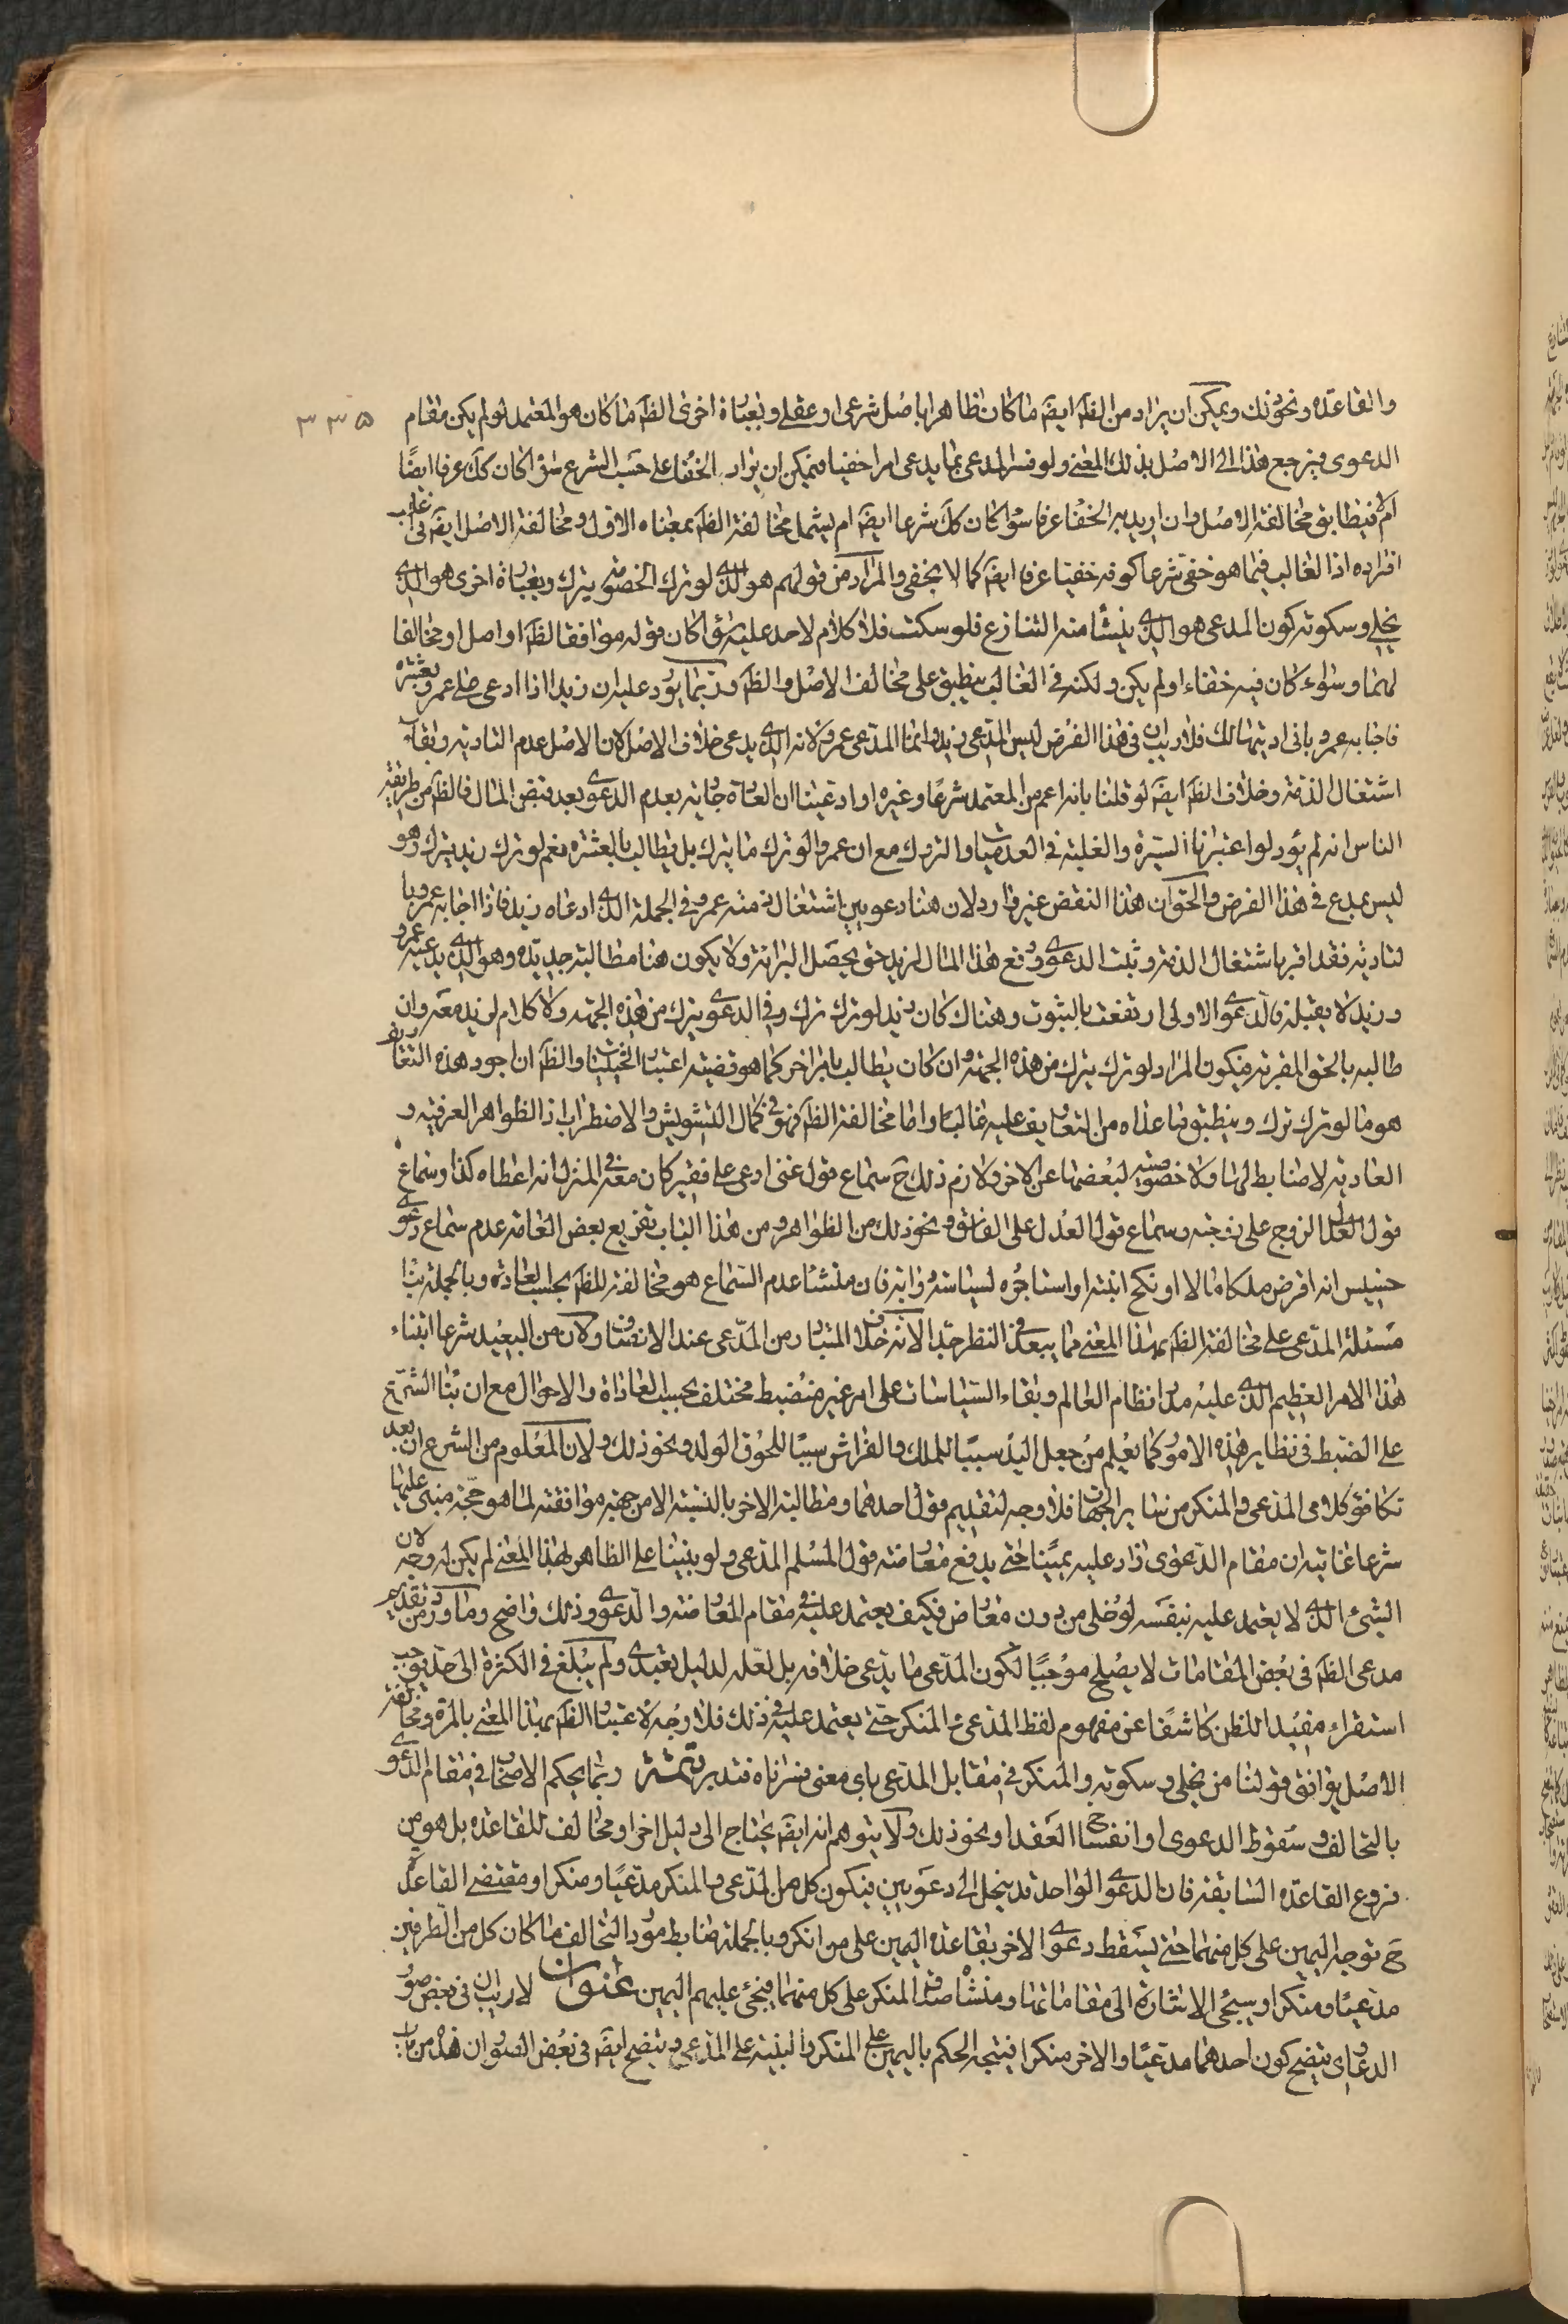 ۳۳۵
والقاعدة ونحو ذلك ويمكن ان يراد من الظ ايضا ما كان ظاهرا باصل شرعى او عقلى وبعبارة اخرى الظ ما كان هو المعتمد لو لم يكن مقام
الدعوى فيرجع هذا الى الاصل بذلك المعنى ولو فسر المدعى بما يدعى امرا خفيا فيمكن ان يراد الخفاء على حسب الشرع سواء كان كك عرفا ايضا
ام لا فيطابق مخالفة الاصل وان اريد به الخفاء عرفا سواء كان كك شرعا ايضا ام يشمل مخالفة الظ بمعناه الاول ومخالفة الاصل ايضا فى غالب
افراده اذ الغالب فيما هو خفى شرعا كونه خفيا عرفا ايضا كما لا يخفى والمراد من قولهم هو الذى لو ترك الخصومة يترك وبعبارة اخرى هو الذى
يخلى وسكوته كون المدعى هو الذى ينشأ منه التنازع فلو سكت فلا كلام لاحد عليه سواء كان قوله موافقا لظ او اصل او مخالفا
لهما وسواء كان فيه خفاء او لم يكن ولكنه فى الغالب ينطبق على مخالف الاصل والظ وربما يورد عليه ان زيدا اذا ادعى على عمرو بعشرة
فاجابه عمرو بانى اديتها لك فلا ريب ان فى هذا الفرض ليس المدعى زيدا وانما المدعى عمرو لانه الذى يدعى خلاف الاصل لان الاصل عدم التادية وبقاء
اشتغال الذمة وخلاف الظ ايضا لو قلنا بانه اعم من المعتمد شرعا وغيره او ادعينا ان العادة جارية بعدم الدعوى بعد قبض المال فالظ من طريقة
الناس انه لم يؤد لو اعتبرنا السيرة والغلبة فى العدميات والتروك مع ان عمروا لو ترك ما يترك بل يطالب بالعشرة نعم لو ترك زيد يترك وهو
ليس بمدع فى هذا الفرض والحق ان هذا النقض غير وارد لان هنا دعويين اشتغال ذمته عمرو فى الجملة الذى ادعاه زيد فاذا اجابه عمرو با
لتادية فقد اقر باشتغال الذمة وثبت الدعوى ودفع هذا المال لزيد حتى يحصل البرائة ولا يكون هنا مطالبة جديدة وهو الذى يدعيه عمرو
وزيد لا يقبله فالدعوى الاولى ارتفعت بالثبوت وهناك كان زيد لو ترك ترك وفى الدعوى يترك من هذه الجهة ولا كلام لزيد معه وان
طالبه بالحق المقر به فيكون المراد لو ترك يترك من هذه الجهة وان كان يطالب بامر اخر كما هو قضية اعتبار الحيثيات والظ ان اجود هذه التعاريف
هو ما لو ترك ترك وينطبق ما عداه من التعاريف عليه غالبا واما مخالفة الظ فهو فى كمال التشويش والاضطراب اذ الظواهر العرفية و
العادية لا ضابط لها ولا خصوصية لبعضها عن الاخر ولازم ذلك ح سماع قول غنى ادعى على فقير كان معه فى المنزل انه اعطاه كذا وسماع
قول الزوج على زوجته وسماع قول العدل على الفاسق ونحو ذلك من الظواهر ومن هذا الباب تفريع بعض العامة عدم سماع دعوى
خسيس انه اقرض ملكا مالا او نكح ابنته او استاجره لسياسة دوابه فان منشا عدم السماع هو مخالفته للظ بحسب العادة وبالجملة بناء
مسئلة المدعى على مخالفة الظ بهذا المعنى مما يبعد فى النظر جدا لانه خلاف المتبادر من المدعى عند الانصاف ولان من البعيد شرعا ابتناء
هذا الامر العظيم الذى عليه مدار نظام العالم وبقاء السياسات على امر غير منضبط مختلف بحسب العادات والاحوال مع ان بناء الشرع
على الضبط فى نظاير هذه الامور كما يعلم من جعل اليد سببا للملك والفراش سببا للحوق الولد ونحو ذلك ولان المعلوم من الشرع ان بعد
تكافؤ كلامى المدعى والمنكر من ساير الجهات فلا وجه لتقديم قول احدهما ومطالبة الاخر بالبينة الا من جهة موافقته لما هو حجة مبنى عليها
شرعا غايته ان مقام الدعوى زاد عليه يمينا حتى يدفع معارضته قول المسلم المدعى ولو بنينا على الظاهر بهذا المعنى لم يكن له وجه لان
الشئ الذى لا يعتمد عليه بنفسه لو خلى من دون معارض فكيف يعتمد عليه فى مقام المعارضة والدعوى وذلك واضح وما ورد من تقديم
مدعى الظ فى بعض المقامات لا يصلح موجبا لكون المدعى ما يدعى خلافه بل لعله لدليل تعبدى ولم يبلغ فى الكثرة الى حد يوجب
استقراء مفيدا للظن كاشفا عن مفهوم لفظ المدعى والمنكر حتى يعتمد عليه فى ذلك فلا وجه لاعتبار الظ بهذا المعنى بالمرة ومخالفة
الاصل يوافق قولنا من يخلى وسكوته والمنكر فى مقابل المدعى باى معنى فسرناه فتدبر تتمة ربما يحكم الاصحاب فى مقام الدعوى
بالتحالف وسقوط الدعوى او انفساخ العقد او نحو ذلك ولا يتوهم انه ايضا يحتاج الى دليل اخر او مخالف للقاعدة بل هو من
فروع القاعدة السابقة فان الدعوى الواحد قد ينحل الى دعويين فيكون كل من المدعى والمنكر مدعيا ومنكرا ومقتضى القاعدة
ح توجه اليمين على كل منهما حتى يسقط دعوى الاخر بقاعدة اليمين على من انكر وبالجملة ضابط مورد التحالف ما كان كل من الطرفين
مدعيا ومنكرا وسيجئ الاشارة الى مقاماتها ومنشا صدق المنكر على كل منهما فيجئ عليهم اليمين عنوان لا ريب ان فى بعض صور
الدعاوى يتضح كون احدهما مدعيا والاخر منكرا فيتجه الحكم باليمين على المنكر والبينة على المدعى ويتضح ايضا فى بعض الصور ان هذا من باب